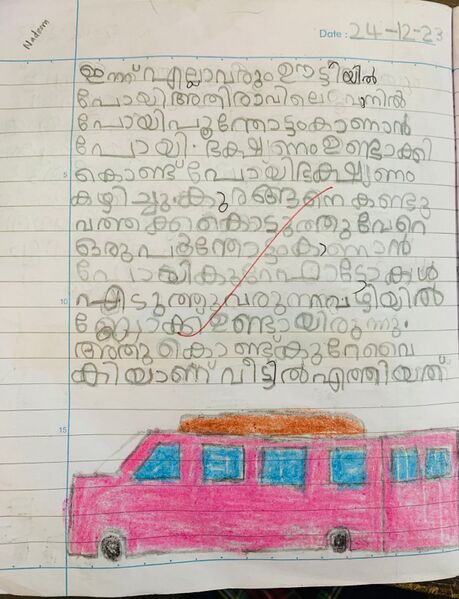 Nadeem
Date : 24-12-23
ഇന്ന് എല്ലാവരും ഊട്ടിയിൽ
പോയി അതിരാവിലെ വാനിൽ
പോയി പൂന്തോട്ടം കാണാൻ
പോയി. ഭക്ഷണം ഉണ്ടാക്കി
5
കൊണ്ട് പോയി ഭക്ഷണം
കഴിച്ചു കുരങ്ങനെ കണ്ടു
വത്തക്ക കൊടുത്തു വേറെ
ഒരു പൂന്തോട്ടം കാണാൻ
പോയി കുറേ ഫോട്ടോകൾ
10
എടുത്തു വരുന്ന വഴിയിൽ
ബ്ലോക്ക് ഉണ്ടായിരുന്നു.
അതു കൊണ്ട് കുറേ വൈ
കിയാണ് വീട്ടിൽ എത്തിയത്
15